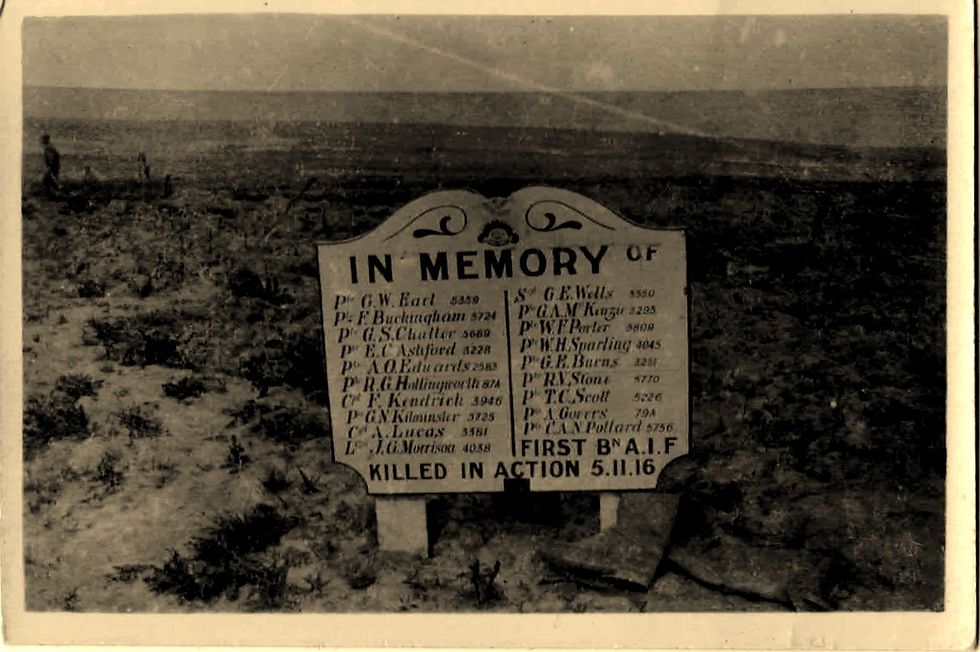 IN MEMORY OF
Pte G.W. Earl 5359
Pte F. Buckingham 5724
Pte G.S. Chatter 5669
Pte E.C. Ashford 3228
Pte A.O. Edwards 2583
Pte R.G. Hollingworth 87A
Cpl F. Kendrick 3946
Pte G.N. Kilminster 5725
Cpl A. Lucas 3381
L/Cpl J.G. Morrison 4038
Sgt G.E. Wells 3550
Pte G.A. McKenzie 3295
Pte W.F. Porter 5809
Pte W.H. Sparling 4045
Pte G.E. Burns 3251
Pte R.V. Stone 5770
Pte T.C. Scott 5226
Pte A. Govers 79A
Pte C.A.N. Pollard 5756
FIRST BN A.I.F
KILLED IN ACTION 5.11.16